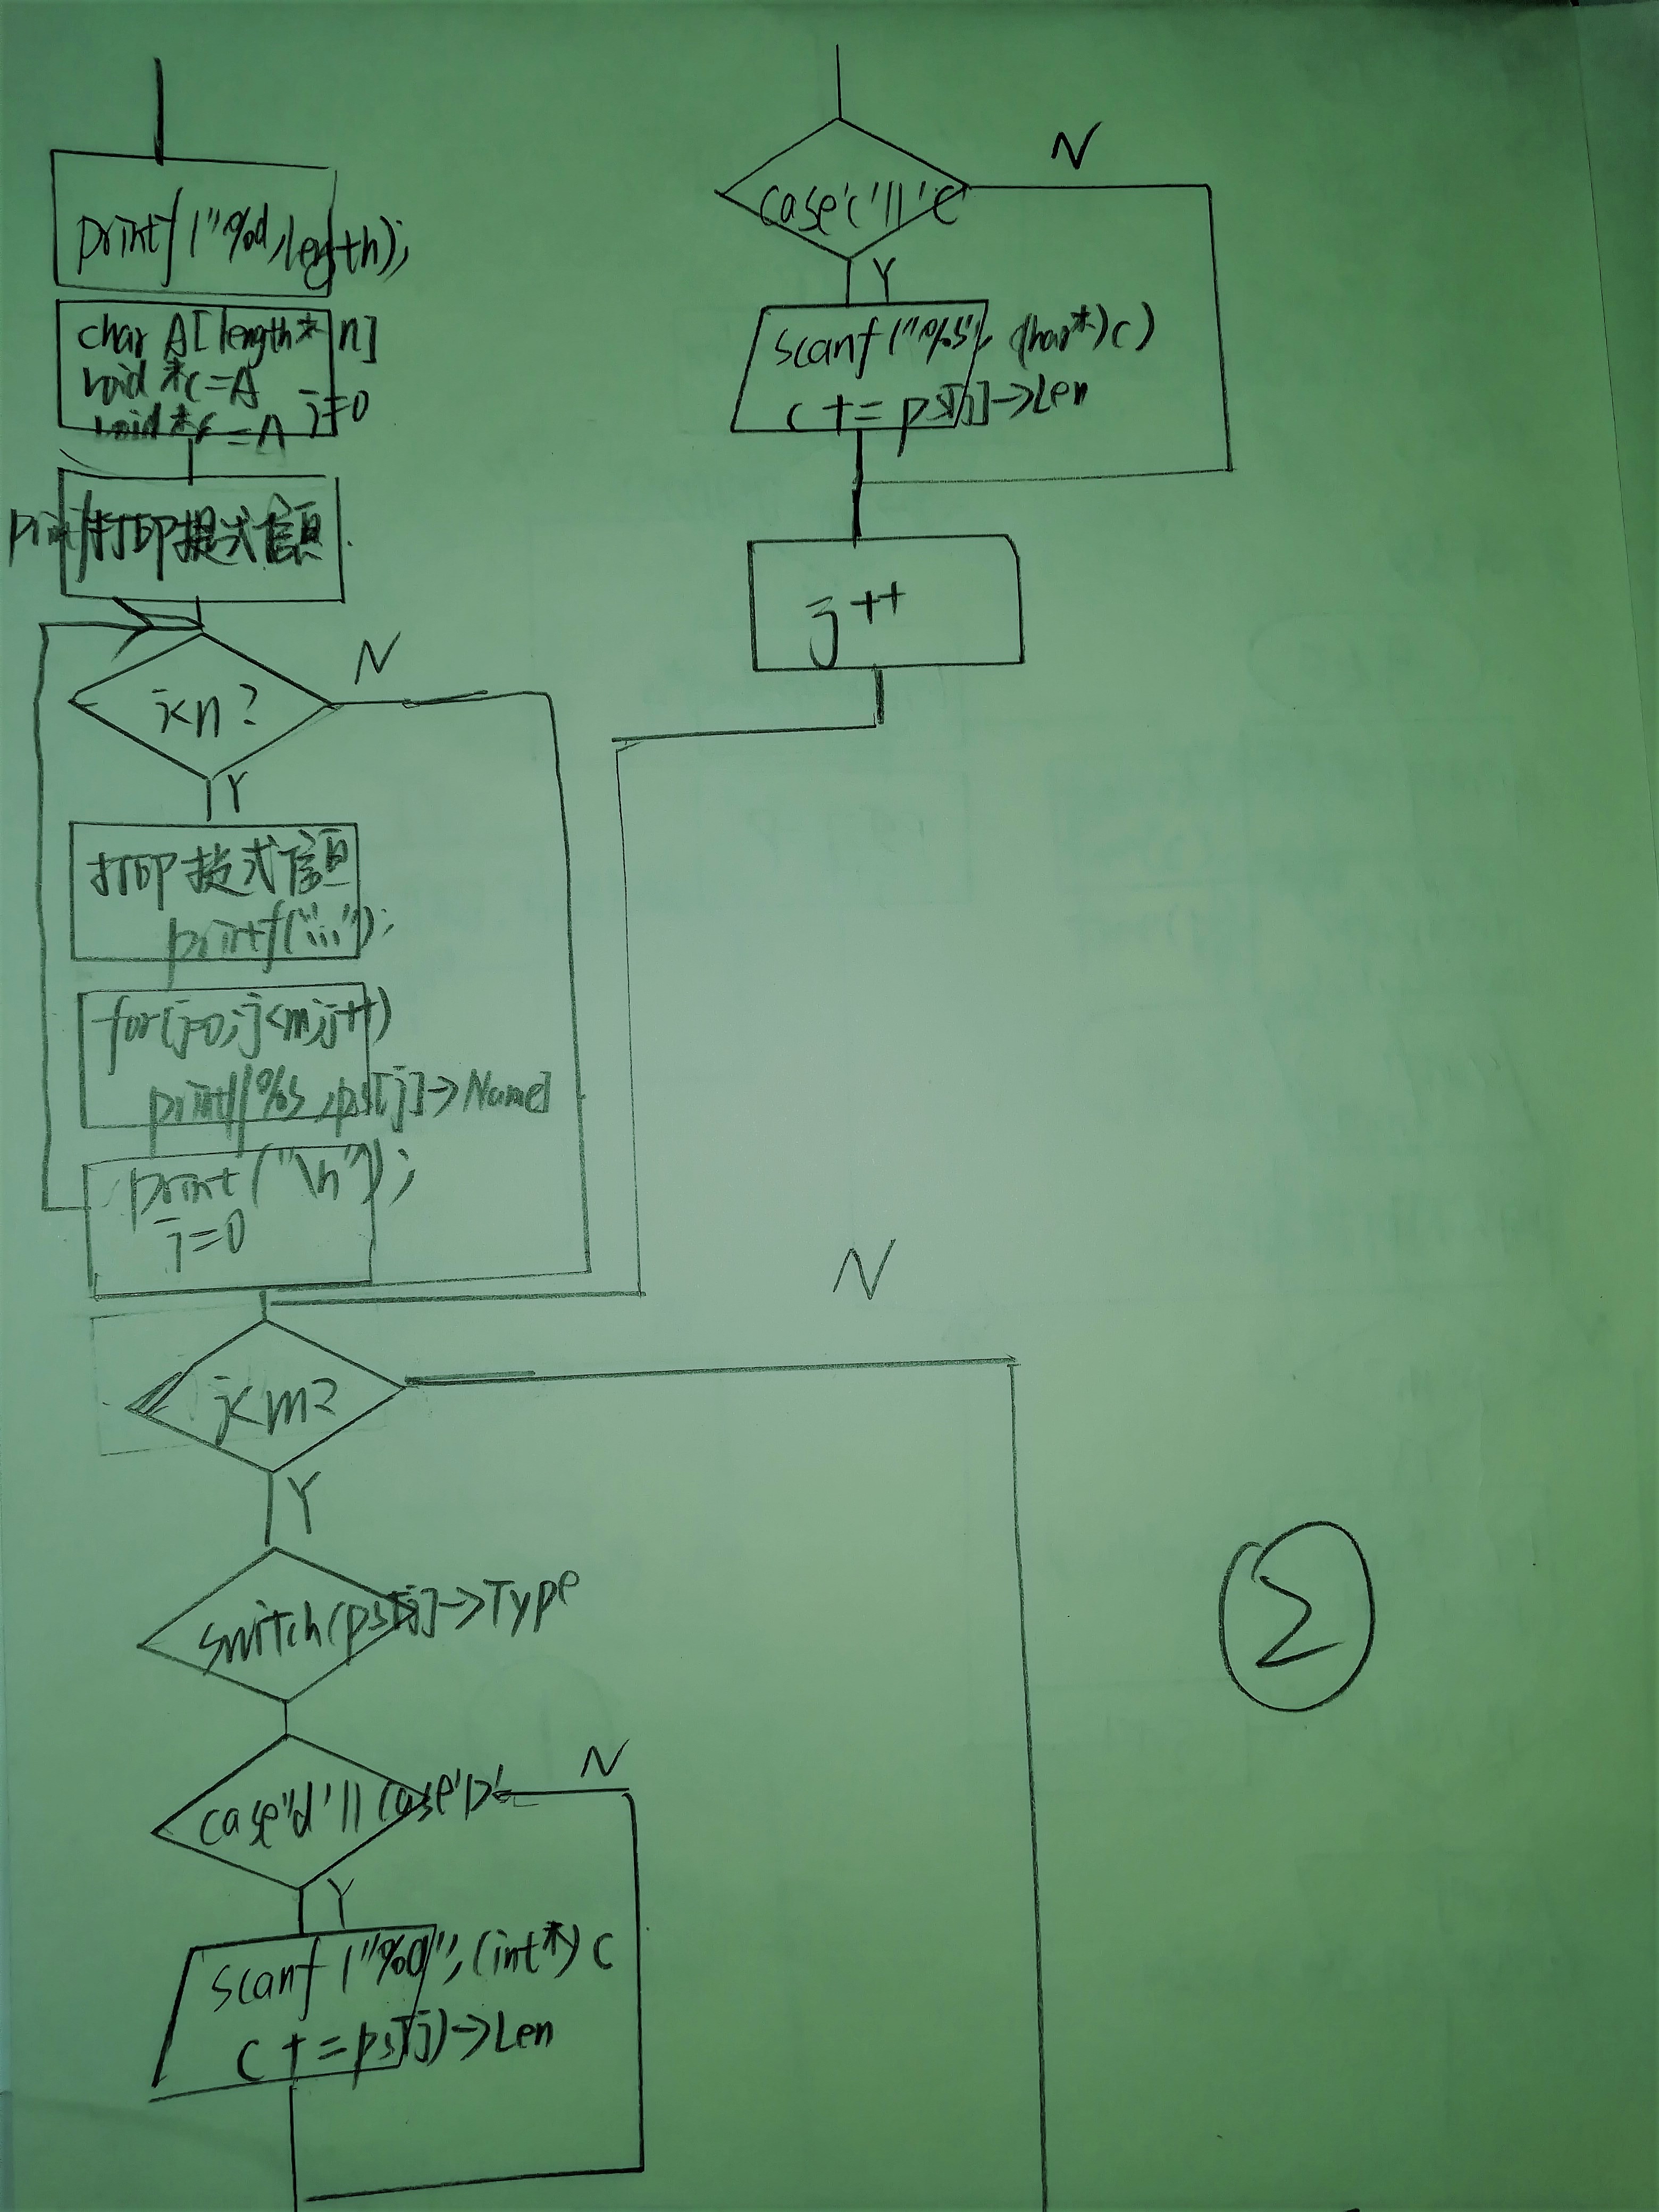 printf("%d,length);
char A[length*n]
void *c=A
void *c=A i=0
打印提式信息
i<n?
N
Y
打印提式信息
printf("...");
for(j=0;j<m;j++)
printf(%s,ps[j]->Name]
print("\n");
j=0
j<m?
N
Y
switch(ps[j]->Type
case'd'||case'D'
N
Y
scanf("%d",(int*)c
c+=ps[j]->Len
case'c'||'C
N
Y
scanf("%s",(char*)c)
c+=ps[j]->Len
j++
2